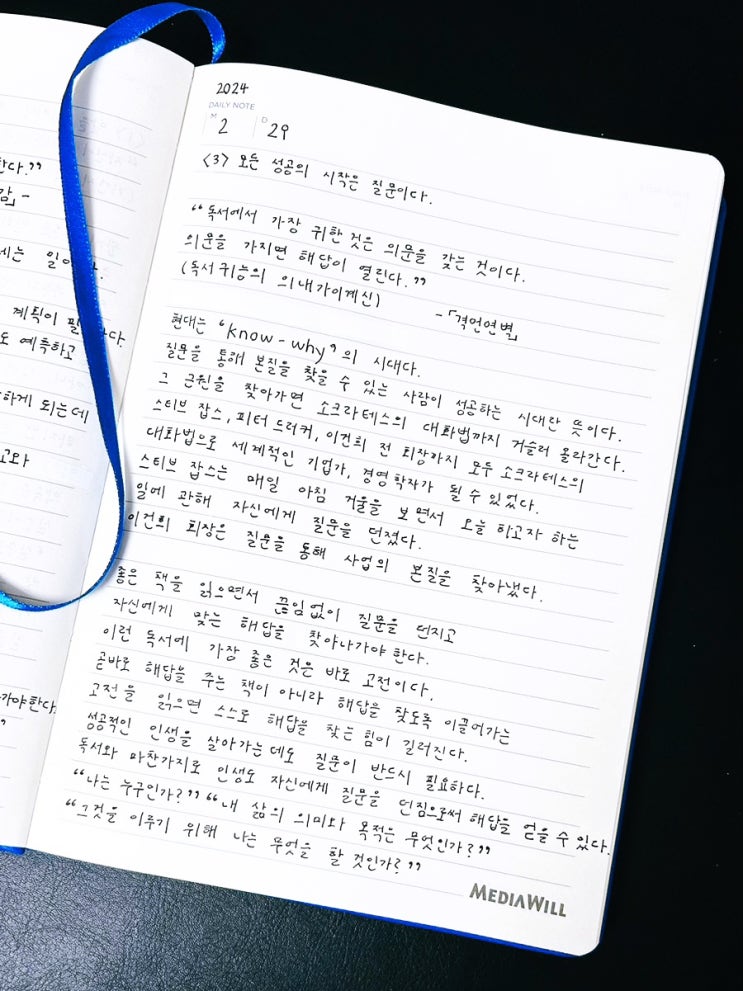 한다."
감」-
세는 일이다.
계획이 필
도 예측하고
하게 되는데
고와
가야한다.
2024
DAILY NOTE
M 2 D 29
<3> 모든 성공의 시작은 질문이다.
"독서에서 가장 귀한 것은 의문을 갖는 것이다.
의문을 가지면 해답이 열린다."
(독서귀능의 의내가이계신)
-「격언연벽」
현대는 "know-why"의 시대다.
질문을 통해 본질을 찾을 수 있는 사람이 성공하는 시대란 뜻이다.
그 근원을 찾아가면 소크라테스의 대화법까지 거슬러 올라간다.
스티브 잡스, 피터 드러커, 이건희 전 회장까지 모두 소크라테스의
대화법으로 세계적인 기업가, 경영학자가 될 수 있었다.
스티브 잡스는 매일 아침 거울을 보면서 오늘 하고자 하는
일에 관해 자신에게 질문을 던졌다.
이건희 회장은 질문을 통해 사업의 본질을 찾아냈다.
좋은 책을 읽으면서 끊임없이 질문을 던지고
자신에게 맞는 해답을 찾아나가야 한다.
이런 독서에 가장 좋은 것은 바로 고전이다.
곧바로 해답을 주는 책이 아니라 해답을 찾도록 이끌어가는
고전을 읽으면 스스로 해답을 찾는 힘이 길러진다.
성공적인 인생을 살아가는데도 질문이 반드시 필요하다.
독서와 마찬가지로 인생도 자신에게 질문을 던짐으로써 해답을 얻을 수 있다.
"나는 누구인가?" "내 삶의 의미와 목적은 무엇인가?"
"그것을 이루기 위해 나는 무엇을 할 것인가?"
MEDIAWILL